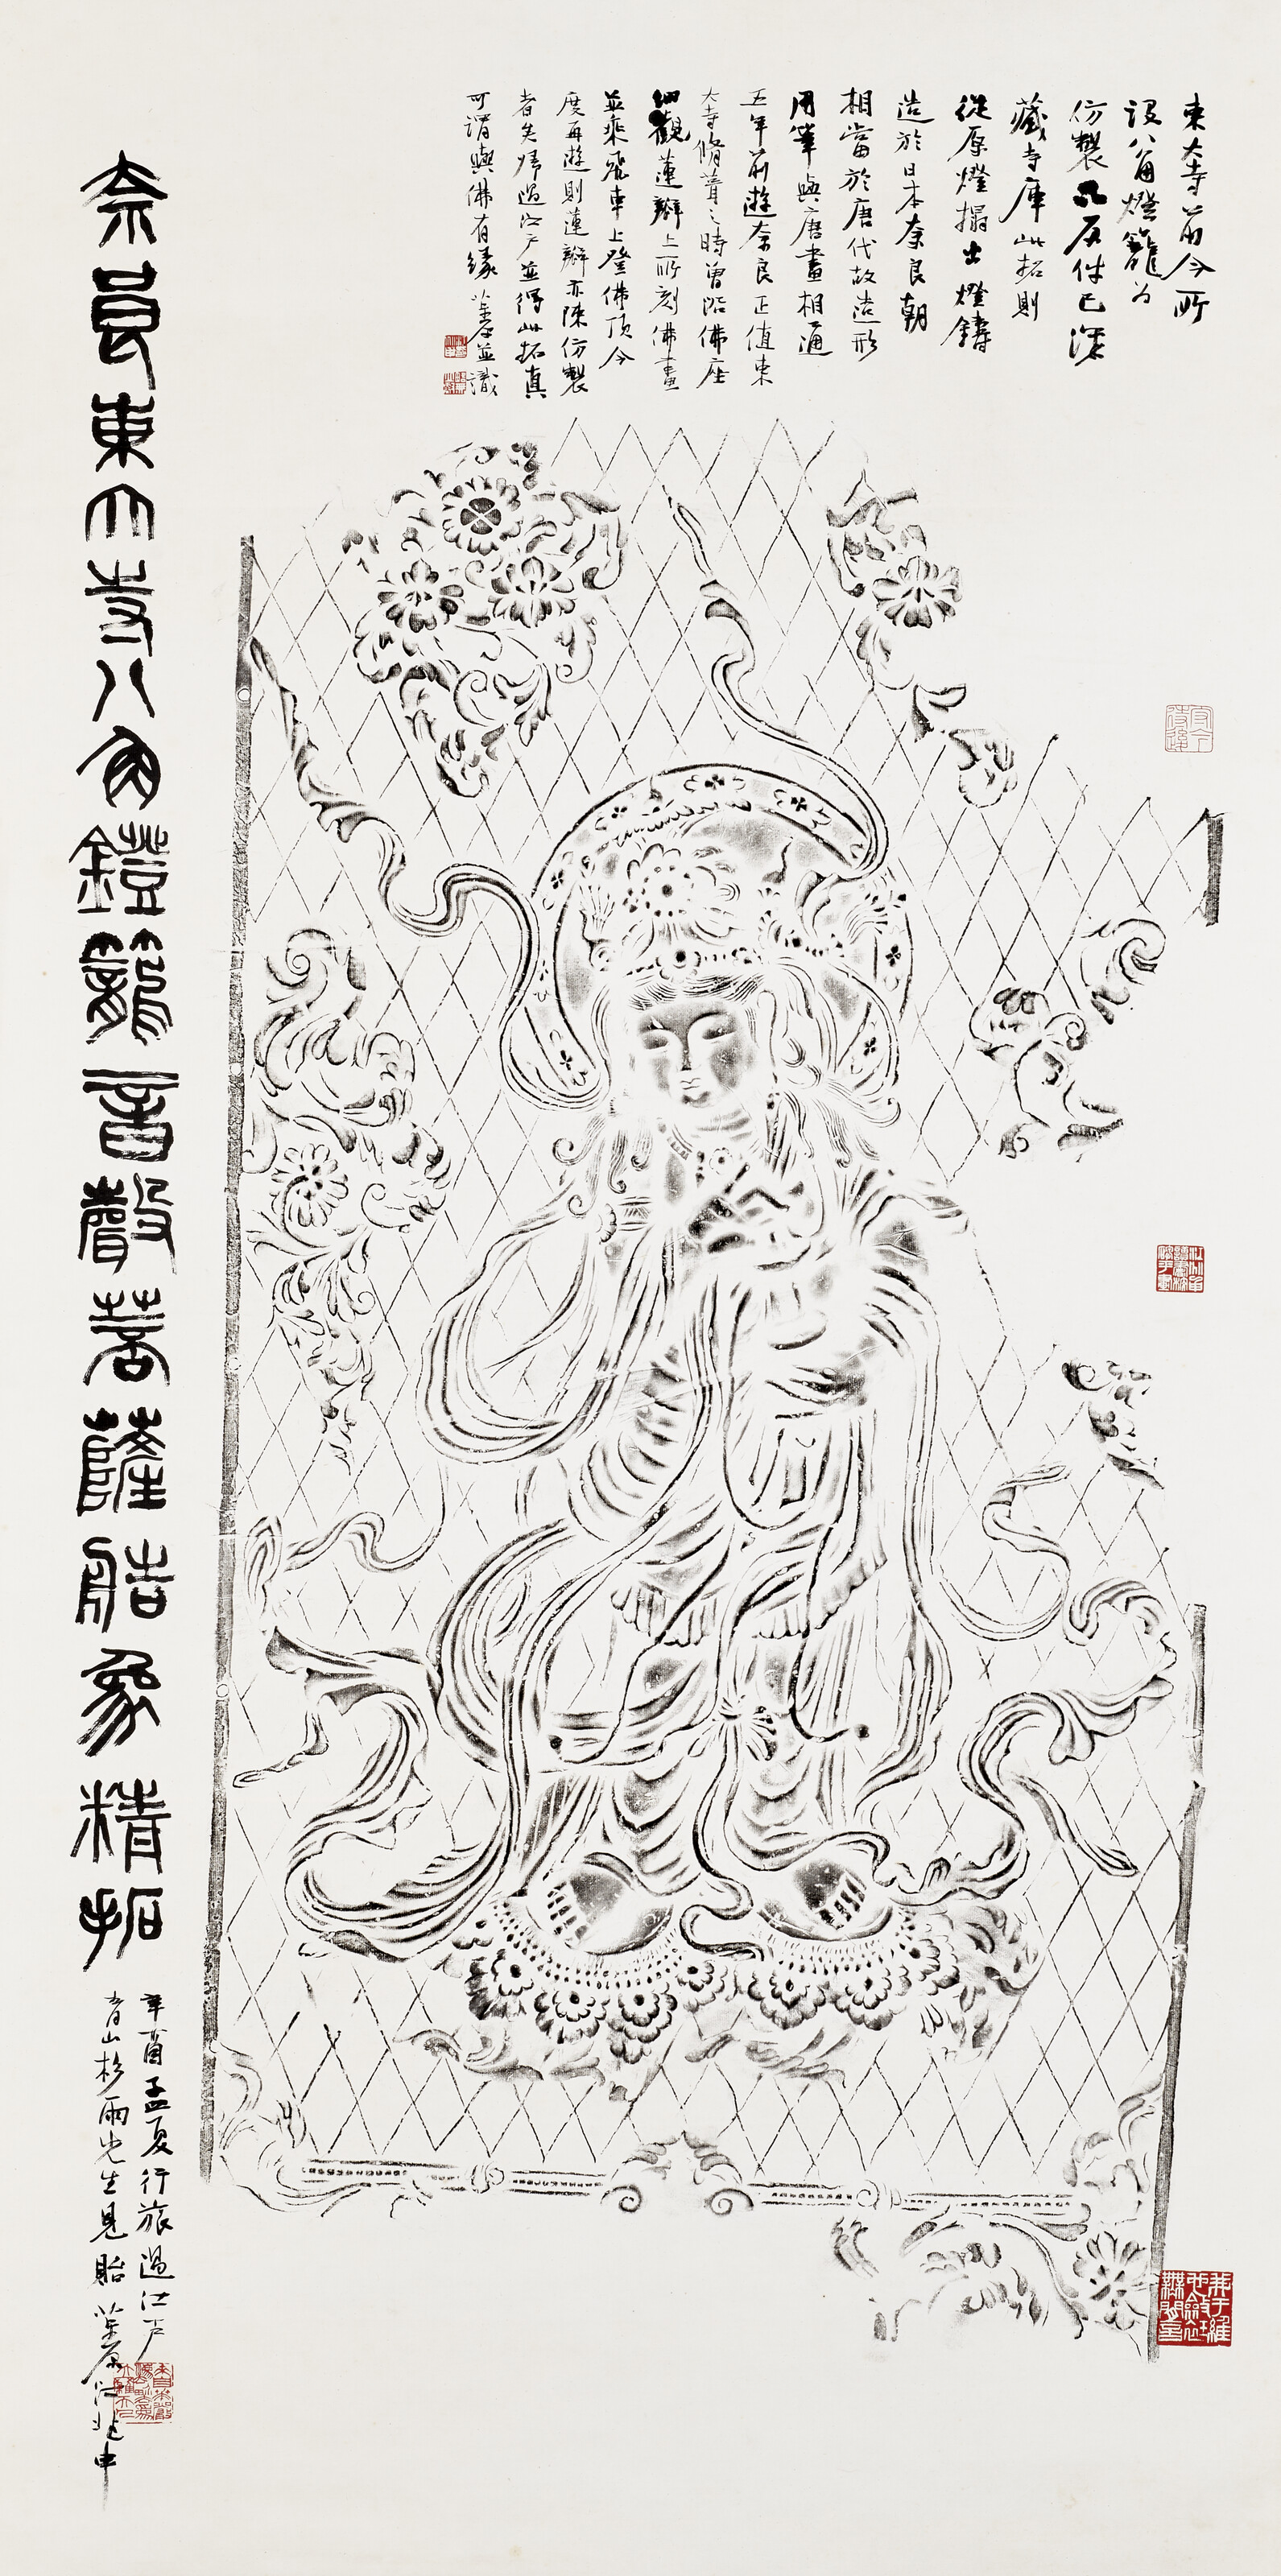 東大寺前今所
設八角燈籠為
仿製品原件已深
藏寺庫此拓則
從原燈搨出燈鑄
造於日本奈良朝
相當於唐代故造形
用筆與唐畫相通
五年前遊奈良正值東
大寺脩葺之時曾階佛座
細觀蓮瓣上所刻佛畫
並乘飛車上登佛頂今
度再遊則蓮瓣亦陳仿製
者矣歸過江戶並得此拓真
可謂與佛有緣 茮原並識
奈良東大寺八角鐙籠音聲菩薩造象精拓
辛酉孟夏行旅過江戶
青山杉雨先生見貽 茮原江兆申